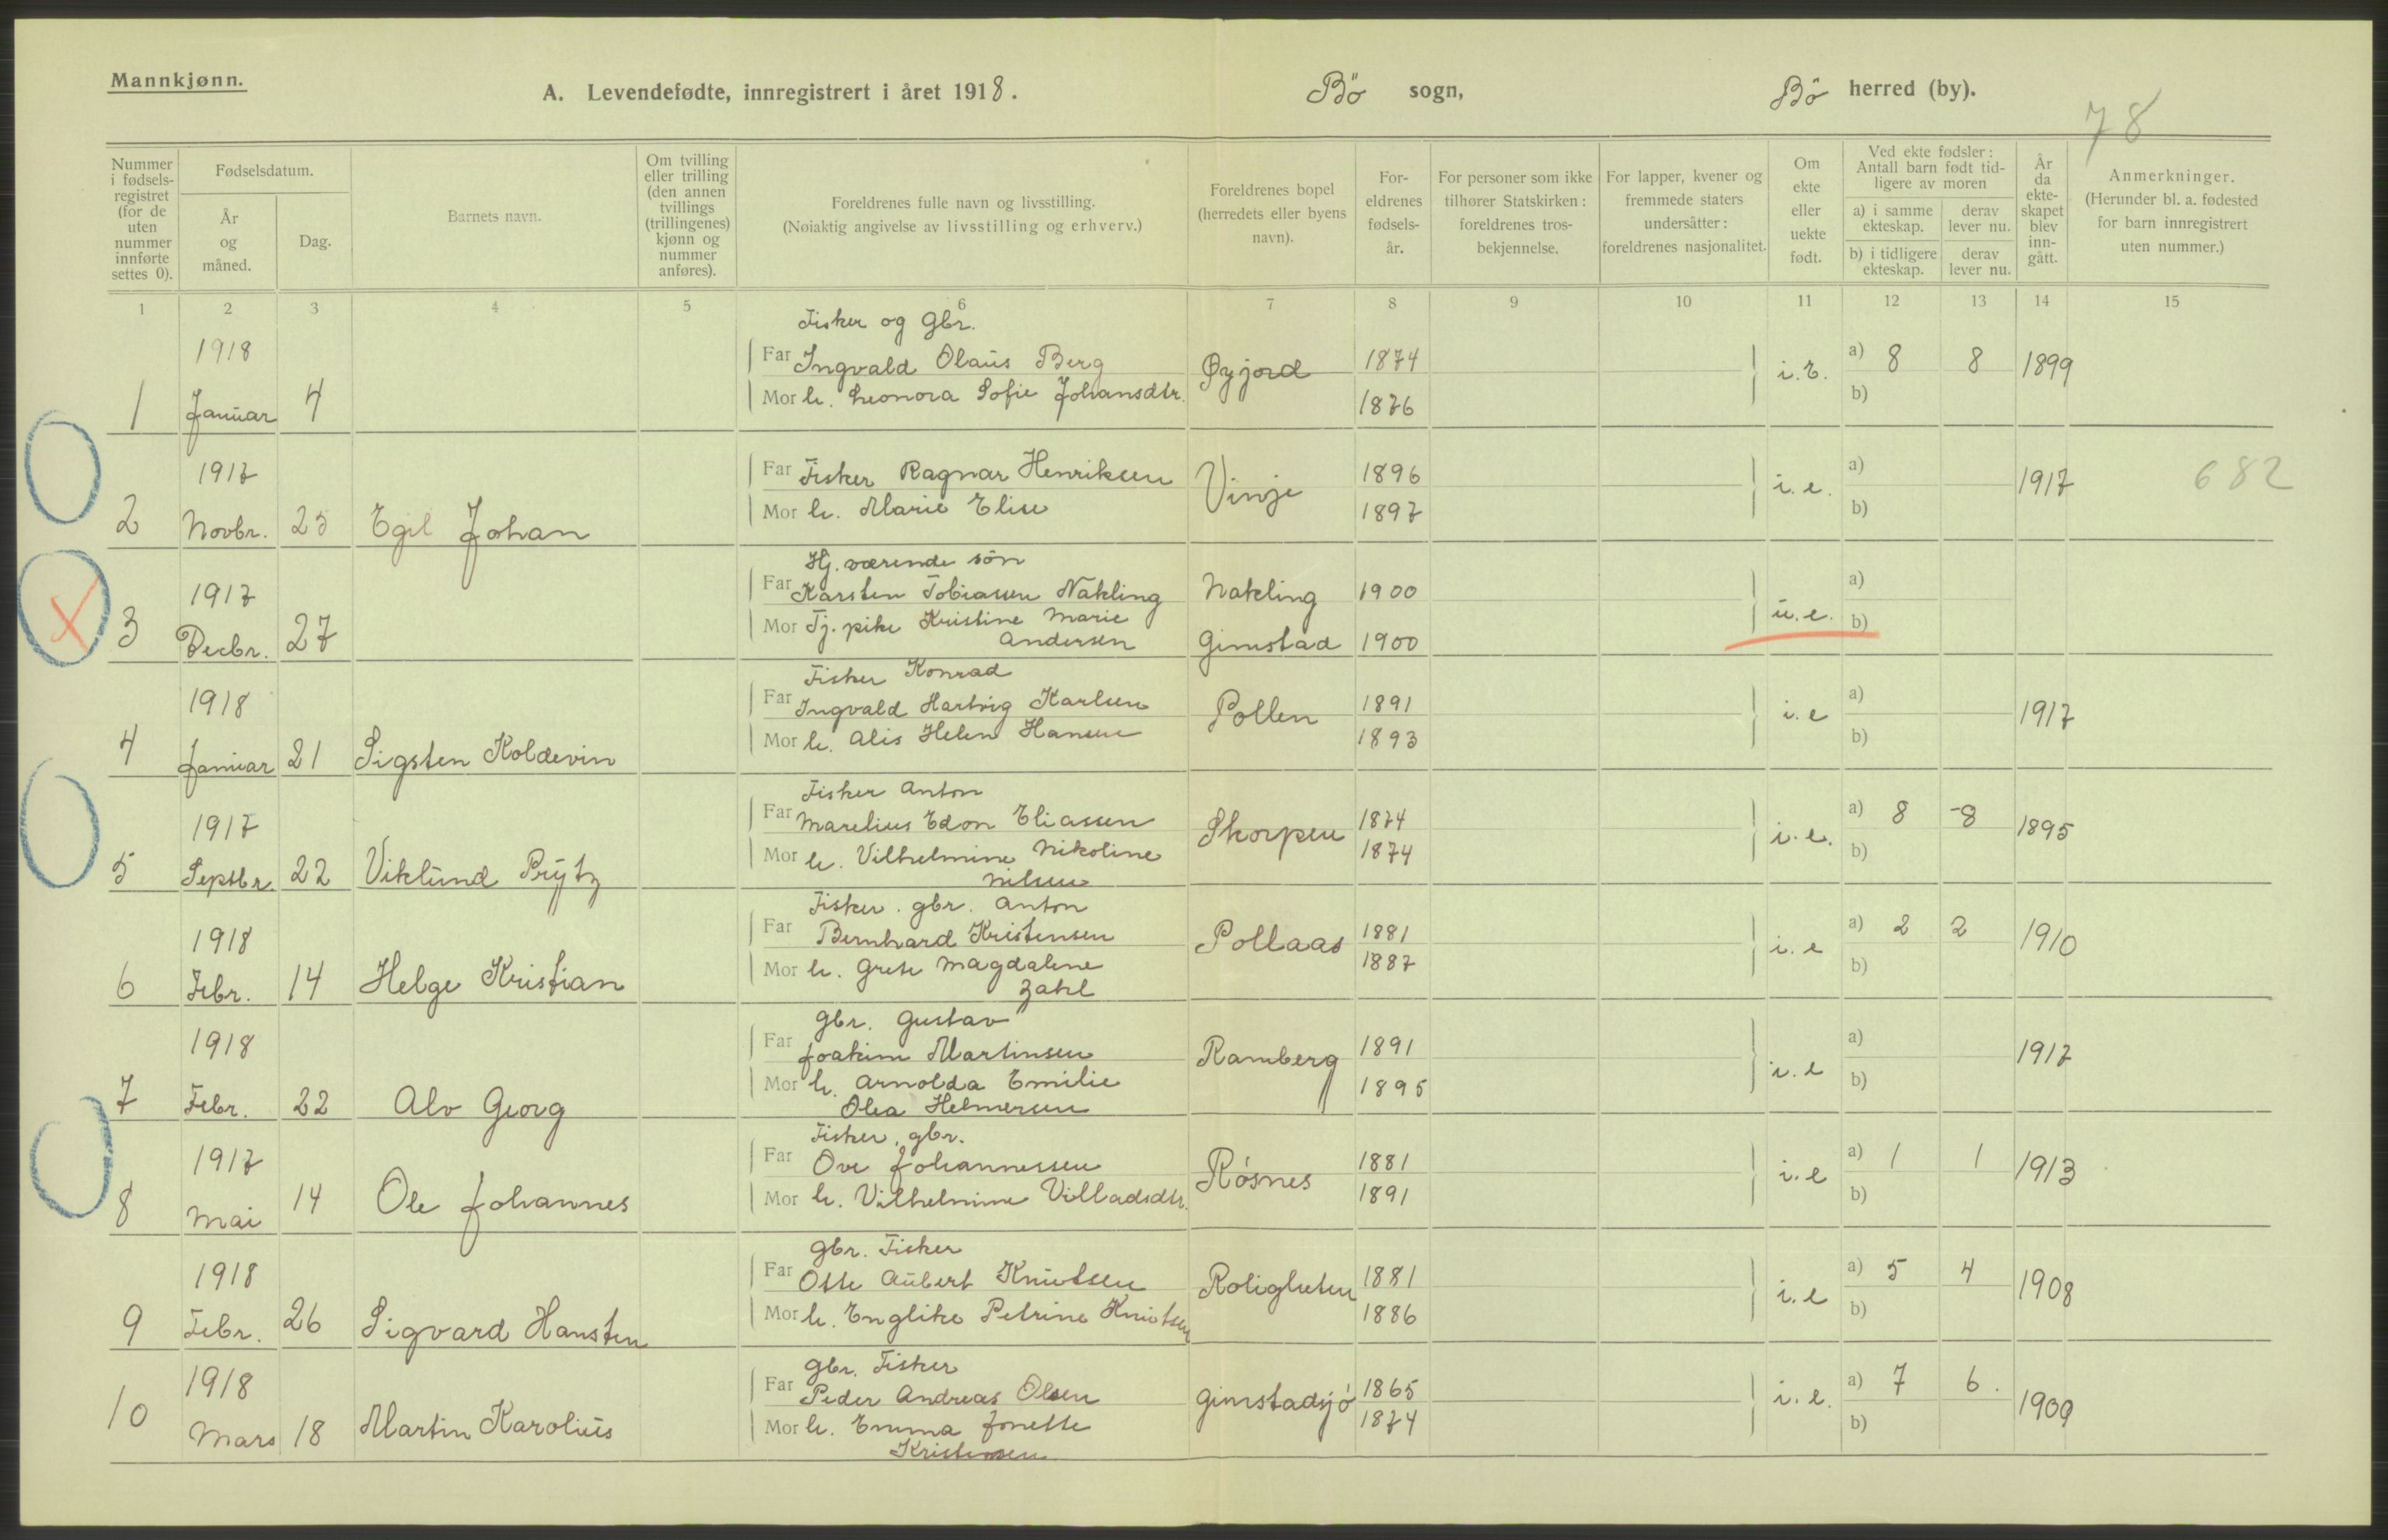 Mannkjønn.
A. Levendefødte, innregistrert i året 1918.
Bö sogn,
Bö herred (by).
78
Nummer i fødsels-registret (for de uten nummer innførte settes 0).
Fødselsdatum.
År og måned.
Dag.
Barnets navn.
Om tvilling eller trilling (den annen tvillings (trillingenes) kjønn og nummer anføres).
Foreldrenes fulle navn og livsstilling.
(Nøiaktig angivelse av livsstilling og erhverv.)
Foreldrenes bopel (herredets eller byens navn).
For-eldrenes fødsels-år.
For personer som ikke tilhører Statskirken: foreldrenes tros-bekjennelse.
For lapper, kvener og fremmede staters undersåtter: foreldrenes nasjonalitet.
Om ekte eller uekte født.
Ved ekte fødsler: Antall barn født tid-ligere av moren
a) i samme ekteskap.
derav lever nu.
b) i tidligere ekteskap.
derav lever nu.
År da ekte-skapet blev inn-gått.
Anmerkninger.
(Herunder bl. a. fødested for barn innregistrert uten nummer.)
1 2 3 4 5 6 7 8 9 10 11 12 13 14 15
Fisker og Gbr.
1918 Far Ingvald Olaüs Berg Øyjord 1874 a) 8 8 1899
1 Januar 4 Mor h. Leonora Sofie Johansdtr. 1876 b)
1917 Far Fisker Ragnar Henriksen Vinje 1896 i.e. a) 1917 682
2 Novbr. 25 Egil Johan Mor h. Marie Elise 1897 b)
Hj. værende sön
1917 Far Karsten Tobiassen Nakling Nakling 1900 a)
3 Decbr. 27 Mor Tj. pike Kristine Marie Andersen Gimstad 1900 ü.e. b)
Fisker Konrad
1918 Far Ingvald Hartvig Karlsen Pollen 1891 i.e a) 1917
4 Januar 21 Sigsten Koldevin Mor h. Alis Helen Hansen 1893 b)
Fisker Anton
1917 Far Marelius Edon Eliassen Skorpen 1874 i.e. a) 8 8 1895
5 Septbr. 22 Viklünd Prÿtz Mor h. Vilhelmine Nikoline Nilsen 1874 b)
Fisker. gbr. Anton
1918 Far Bernhard Kristensen Pollaas 1881 i.e a) 2 2 1910
6 Febr. 14 Helge Kristian Mor h. Grete Magdalene Zahl 1887 b)
Gbr. Gustav
1918 Far Joakim Martinsen Ramberg 1891 i.e a) 1917
7 Febr. 22 Alv Georg Mor h. Arnolda Emilie Olea Helmersen 1895 b)
Fisker, gbr.
1917 Far Ove Johannessen Rösnes 1881 i.e a) 1 1 1913
8 Mai 14 Ole Johannes Mor h. Vilhelmine Villadsdtr. 1891 b)
Gbr. Fisker
1918 Far Otte Aübert Knütsen Roligheten 1881 i.e a) 5 4 1908
9 Febr. 26 Sigvard Hansten Mor h. Englike Petrine Knütsen 1886 b)
Gbr. Fisker
1918 Far Peder Andreas Olsen Gimstadsjö 1865 i.e. a) 7 6. 1909
10 Mars 18 Martin Karoliüs Mor h. Emma Jonette Kristensen 1874 b)